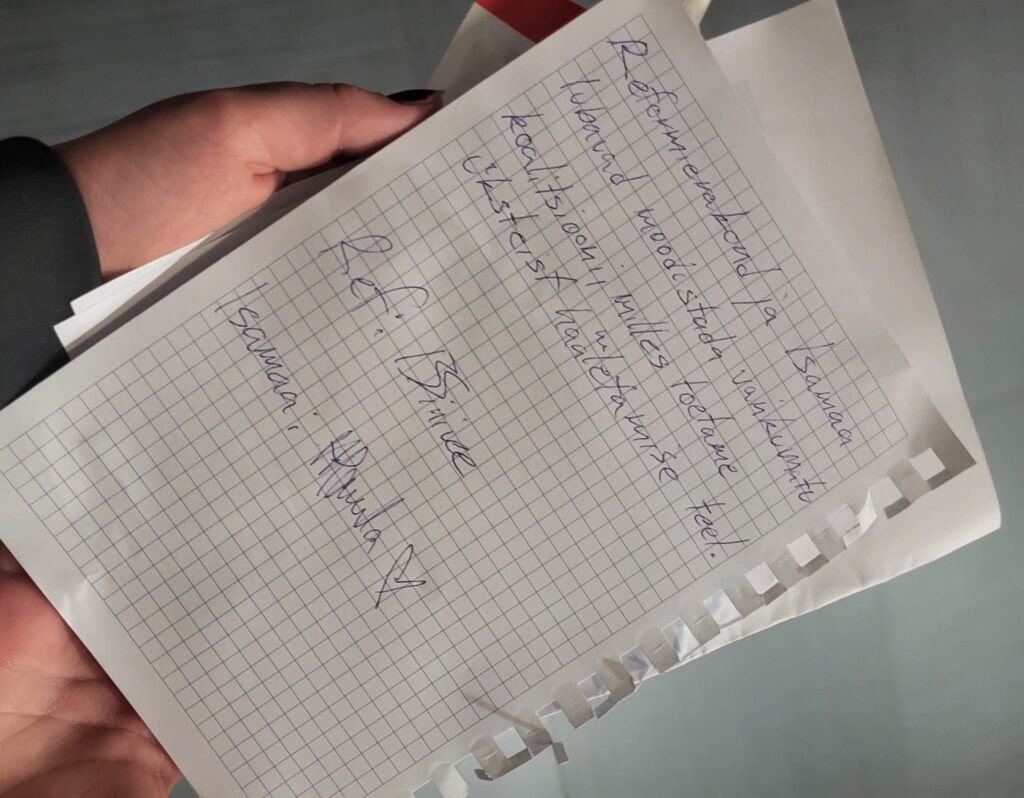 Reformierakond ja Isamaa
lubavad moodustada vankumatu
koalitsiooni milles toetame
üksteist hääletamise teel.
Ref:
Isamaa: